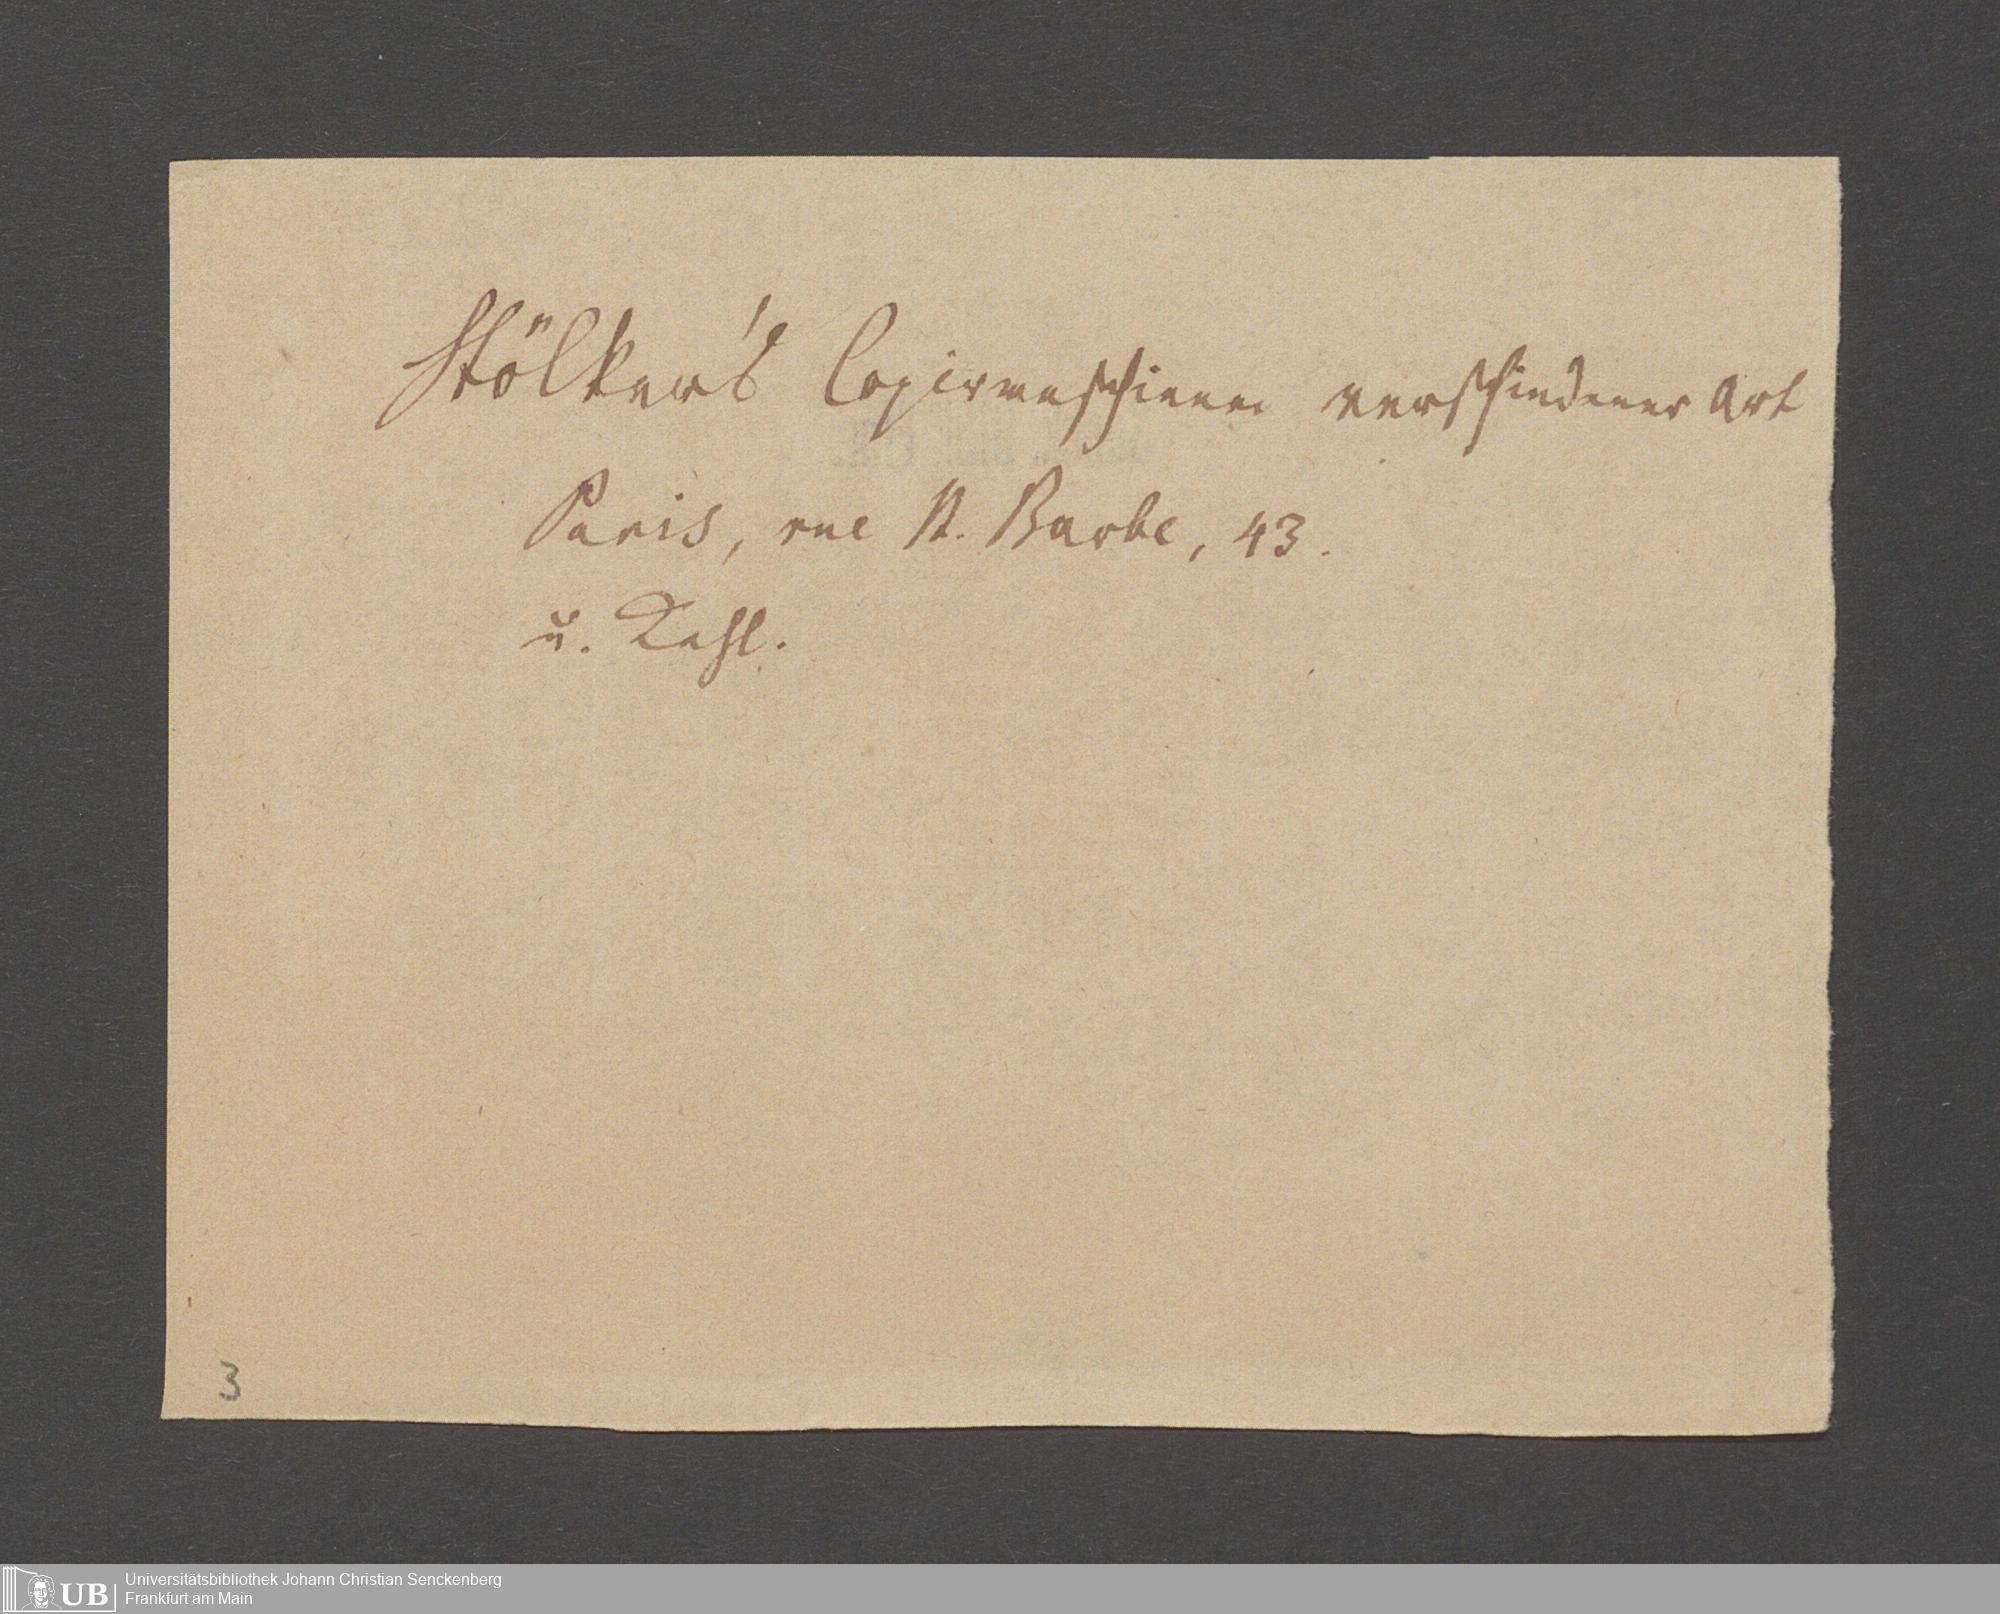 Stölker's Copirmaschinen verschiedener Art
Paris, rue St. Barbe, 43.
u. Kehl.
3
UB
Universitätsbibliothek Johann Christian Senckenberg
Frankfurt am Main